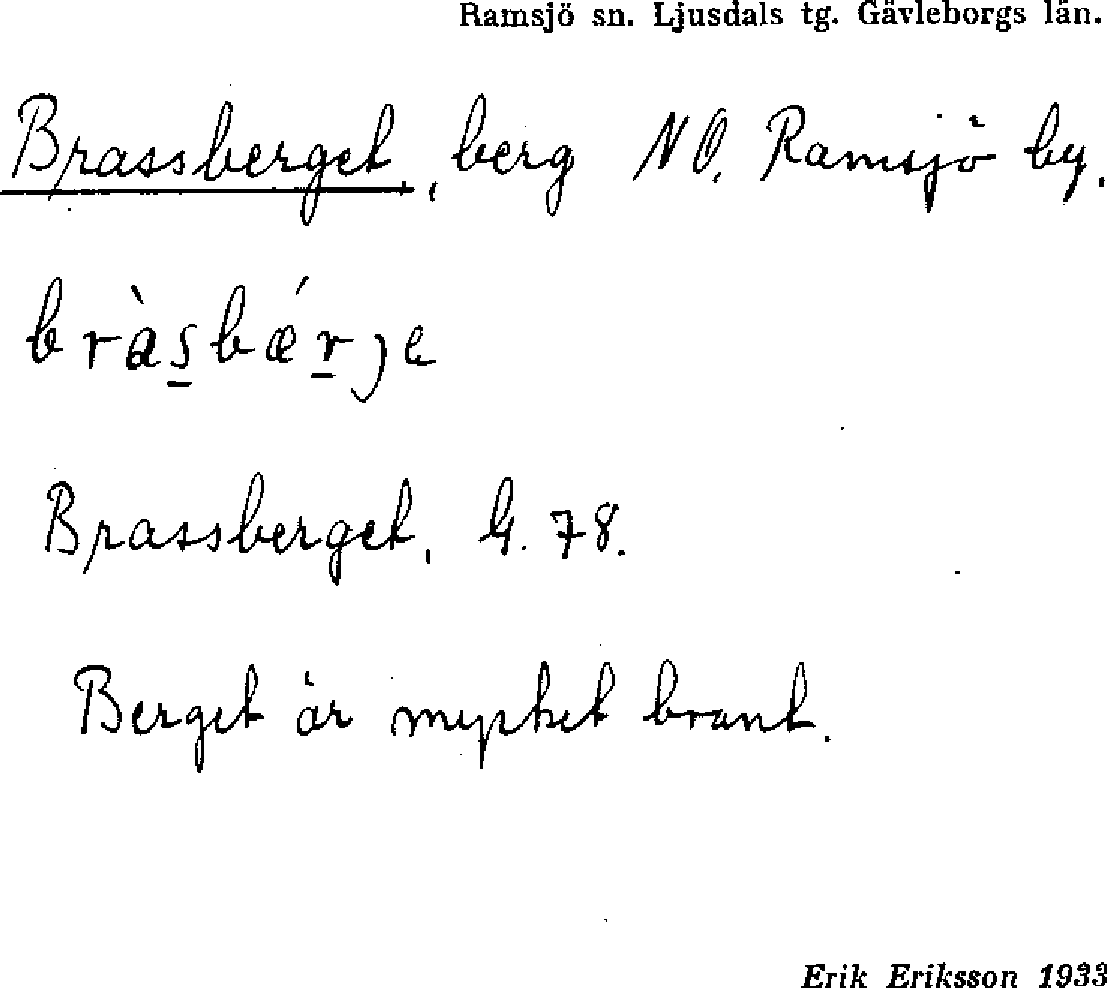 Ramsjö sn. Ljusdals tg. Gävleborgs län.
Brassberget, berg NO. Ramsjö by.
bràs̱bǽṟje
Brassberget, G. 78.
Berget är mycket brant.
Erik Eriksson 1933